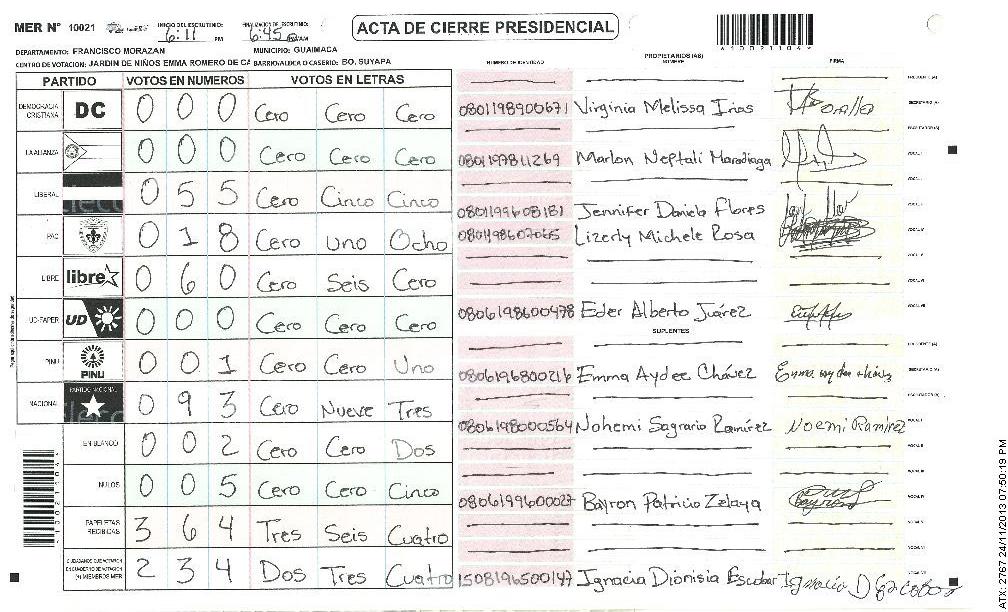 MER Nº 10021 INICIO DEL ESCRUTINIO: 6:11 PM FINALIZACION DE ESCRUTINIO: 6:45 ACTA DE CIERRE PRESIDENCIAL
DEPARTAMENTO: FRANCISCO MORAZAN MUNICIPIO: GUAIMACA
CENTRO DE VOTACION: JARDIN DE NIÑOS EMMA ROMERO DE CA BARRIO/ALDEA O CASERIO: BO. SUYAPA
PARTIDO VOTOS EN NUMEROS VOTOS EN LETRAS
DEMOCRACIA CRISTIANA DC 0 0 0 Cero Cero Cero
LA ALIANZA 0 0 0 Cero Cero Cero
LIBERAL 0 5 5 Cero Cinco Cinco
PAC 0 1 8 Cero Uno Ocho
LIBRE libre 0 6 0 Cero Seis Cero
UD-FAPER UD 0 0 0 Cero Cero Cero
PINU PINU 0 0 1 Cero Cero Uno
NACIONAL PARTIDO NACIONAL 0 9 3 Cero Nueve Tres
EN BLANCO 0 0 2 Cero Cero Dos
NULOS 0 0 5 Cero Cero Cinco
PAPELETAS RECIBIDAS 3 6 4 Tres Seis Cuatro
2 3 4 Dos Tres Cuatro
NUMERO DE IDENTIDAD PROPIETARIOS (AS) NOMBRE FIRMA
0801198900671 Virginia Melissa Irias
0801197811269 Marlon Neptali Maradiaga
0801199608181 Jennifer Daniela Flores
0801198607065 Lizerly Michele Rosa
0806198600478 Eder Alberto Juárez
SUPLENTES
0806196800216 Emma Aydee Chávez
0806198000564 Nohemi Sagrario Ramírez Noemi Ramírez
0806199600027 Bayron Patricio Zelaya
1508196500147 Ignacia Dionisia Escobar
2767 24/11/2013 07:50:19 PM